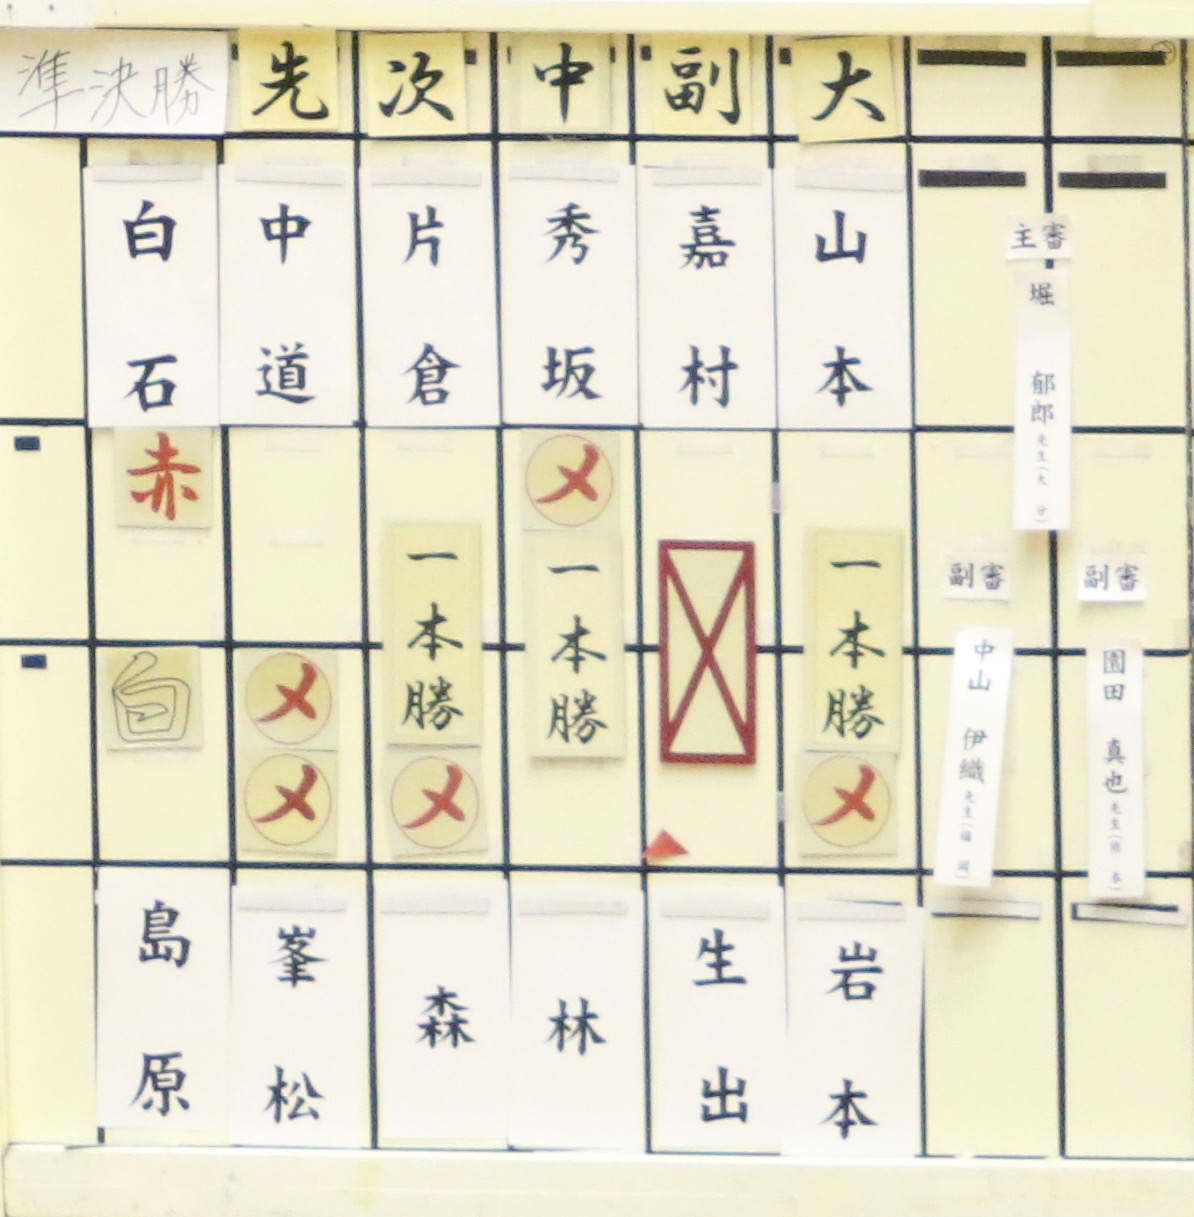 準決勝 先 次 中 副 大
白石 中道 片倉 秀坂 嘉村 山本
主審
堀 郁郎 先生(大分)
赤 メ
一本勝 一本勝 一本勝
副審 副審
中山 伊織 先生(福岡)
園田 真也 先生(熊本)
白 メ
メ メ メ
島原 峯松 森 林 生出 岩本